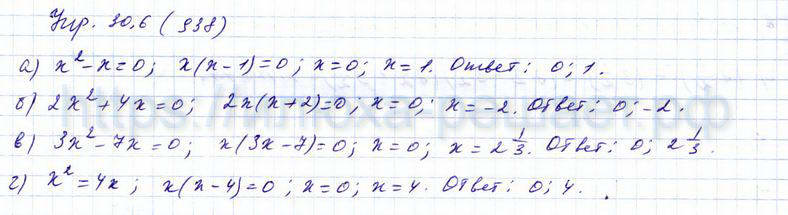 Упр. 30.6 (938)
а) x² - x = 0; x(x-1) = 0; x = 0; x = 1. Ответ: 0; 1.
б) 2x² + 4x = 0; 2x(x+2) = 0; x = 0; x = -2. Ответ: 0; -2.
в) 3x² - 7x = 0; x(3x-7) = 0; x = 0; x = 2 1/3. Ответ: 0; 2 1/3.
г) x² = 4x; x(x-4) = 0; x = 0; x = 4. Ответ: 0; 4.